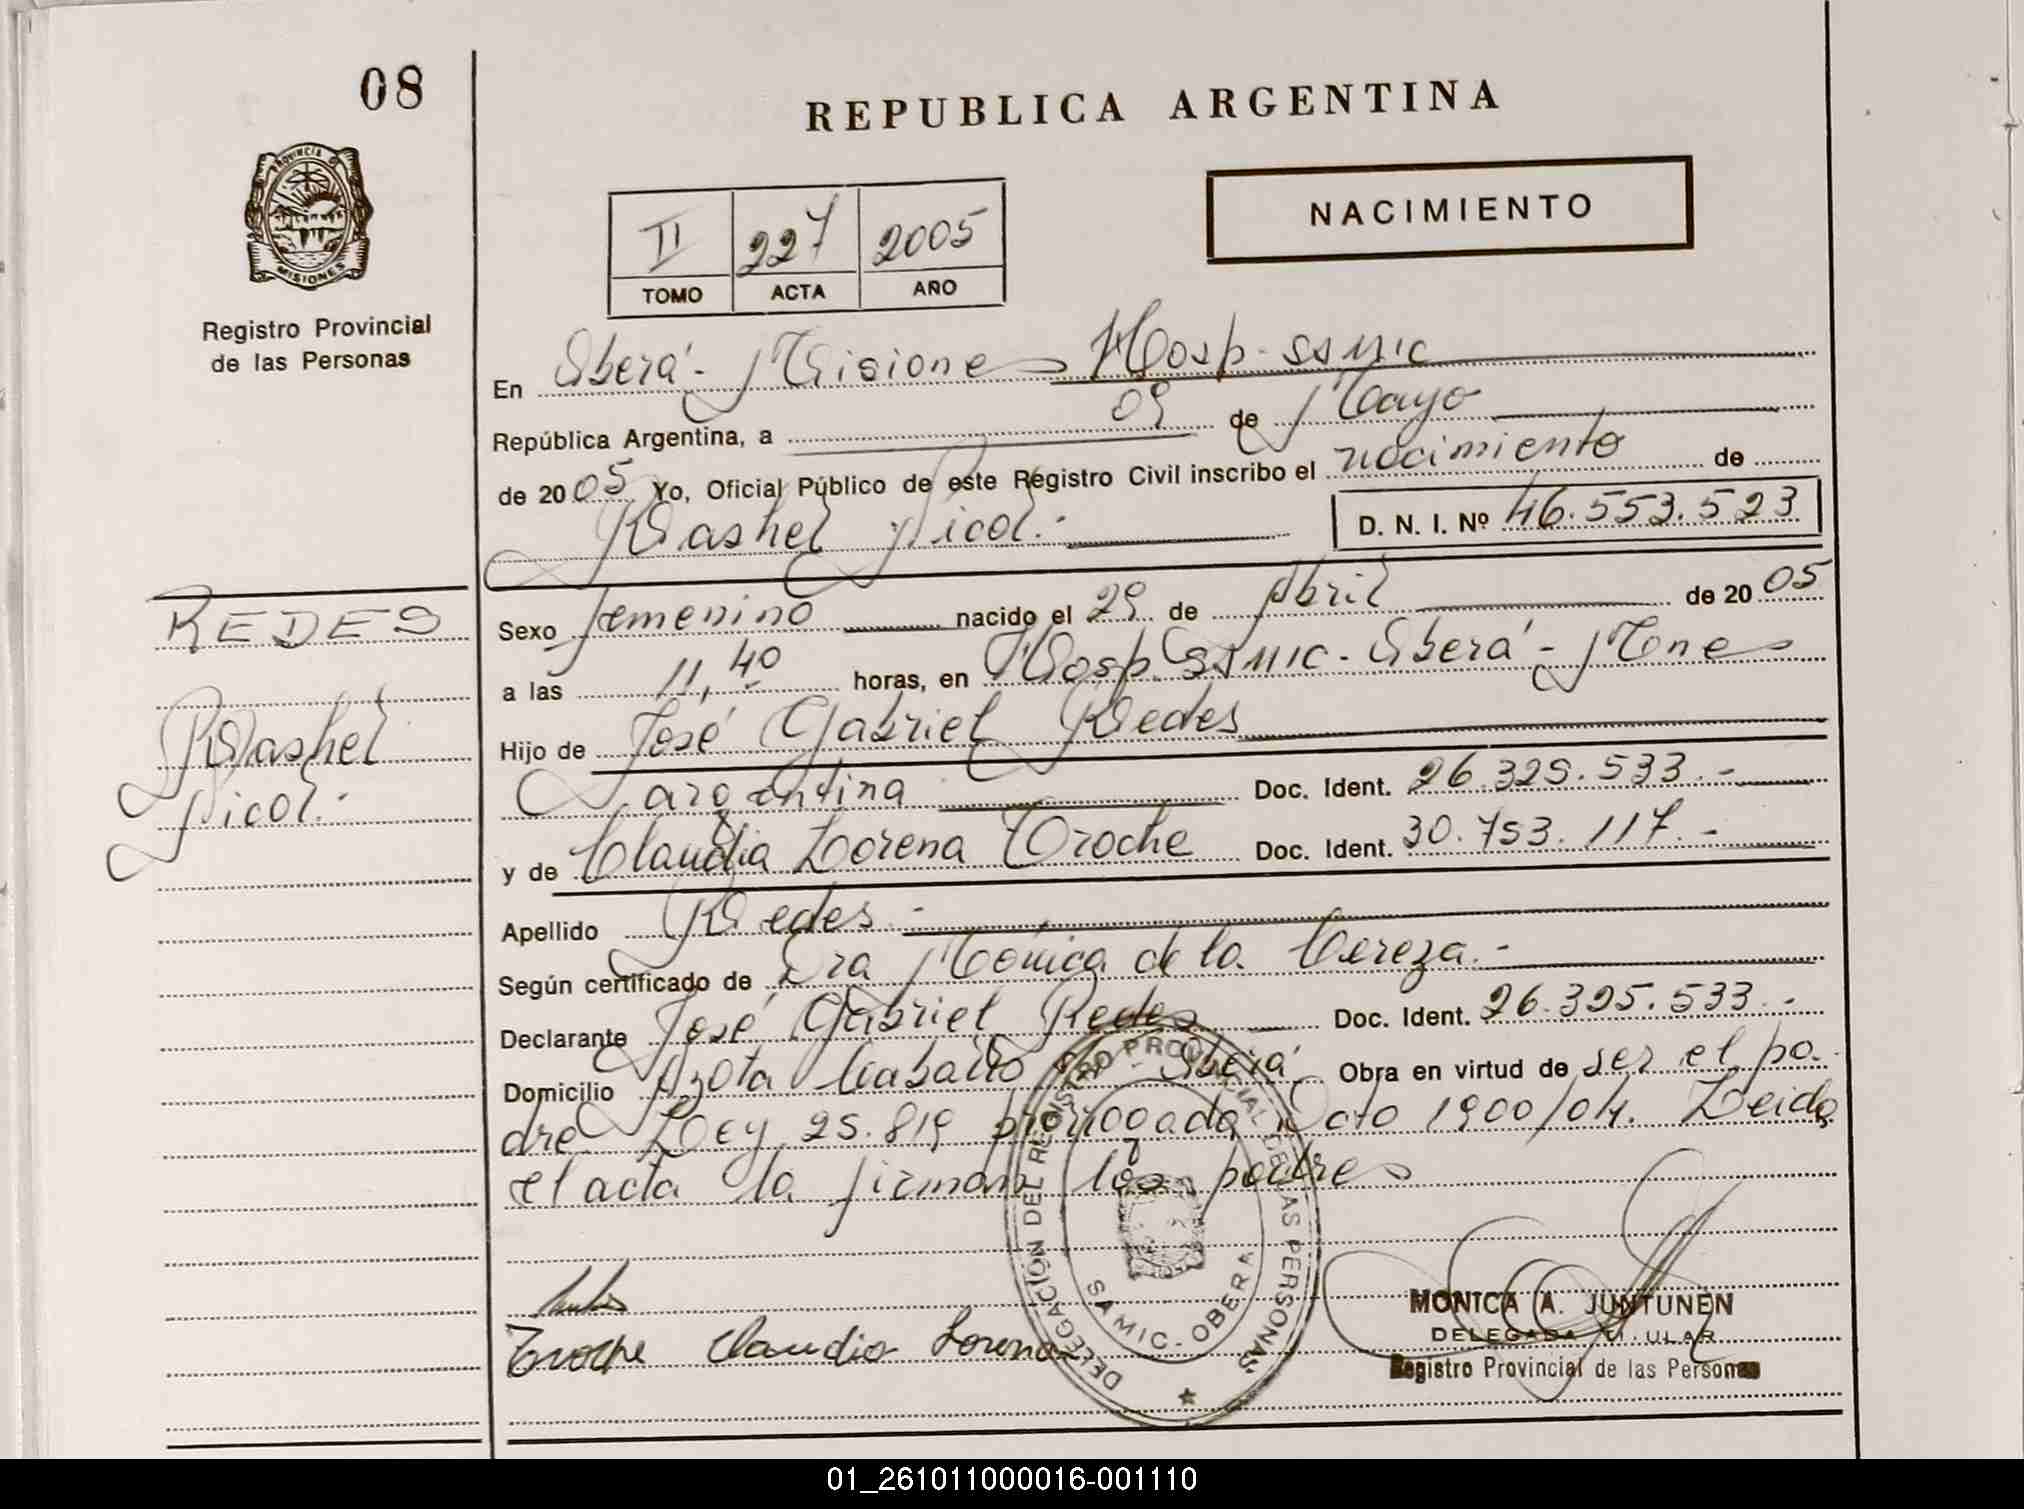 08
REPUBLICA ARGENTINA
PROVINCIA DE
MISIONES
Registro Provincial
de las Personas
NACIMIENTO
II 227 2005
TOMO ACTA AÑO
En Oberá - Misiones Hosp. SSMIC
República Argentina, a 09 de Mayo
de 2005 Yo, Oficial Público de este Registro Civil inscribo el nacimiento de
Rashel Nicol.-
D. N. I. Nº 46.553.523
REDES
Rashel
Nicol.-
Sexo femenino nacido el 29 de Abril de 2005
a las 11,40 horas, en Hosp. SSMIC - Oberá - Mnes
Hijo de José Gabriel Redes
argentina Doc. Ident. 26.325.533.-
y de Claudia Lorena Troche Doc. Ident. 30.753.117.-
Apellido Redes.-
Según certificado de Dra Mónica de la Cereza.-
Declarante José Gabriel Redes Doc. Ident. 26.325.533.-
Domicilio Azota Caballo Oberá Obra en virtud de ser el pa-
dre Ley 25.819 prorrogada Dcto 1900/04. Leida
el acta la firman los padres
DELEGACIÓN DEL REGISTRO PROVINCIAL DE LAS PERSONAS
SAMIC - OBERA
Troche Claudia Lorena
MONICA A. JUNTUNEN
DELEGADA TITULAR
Registro Provincial de las Personas
01_261011000016-001110